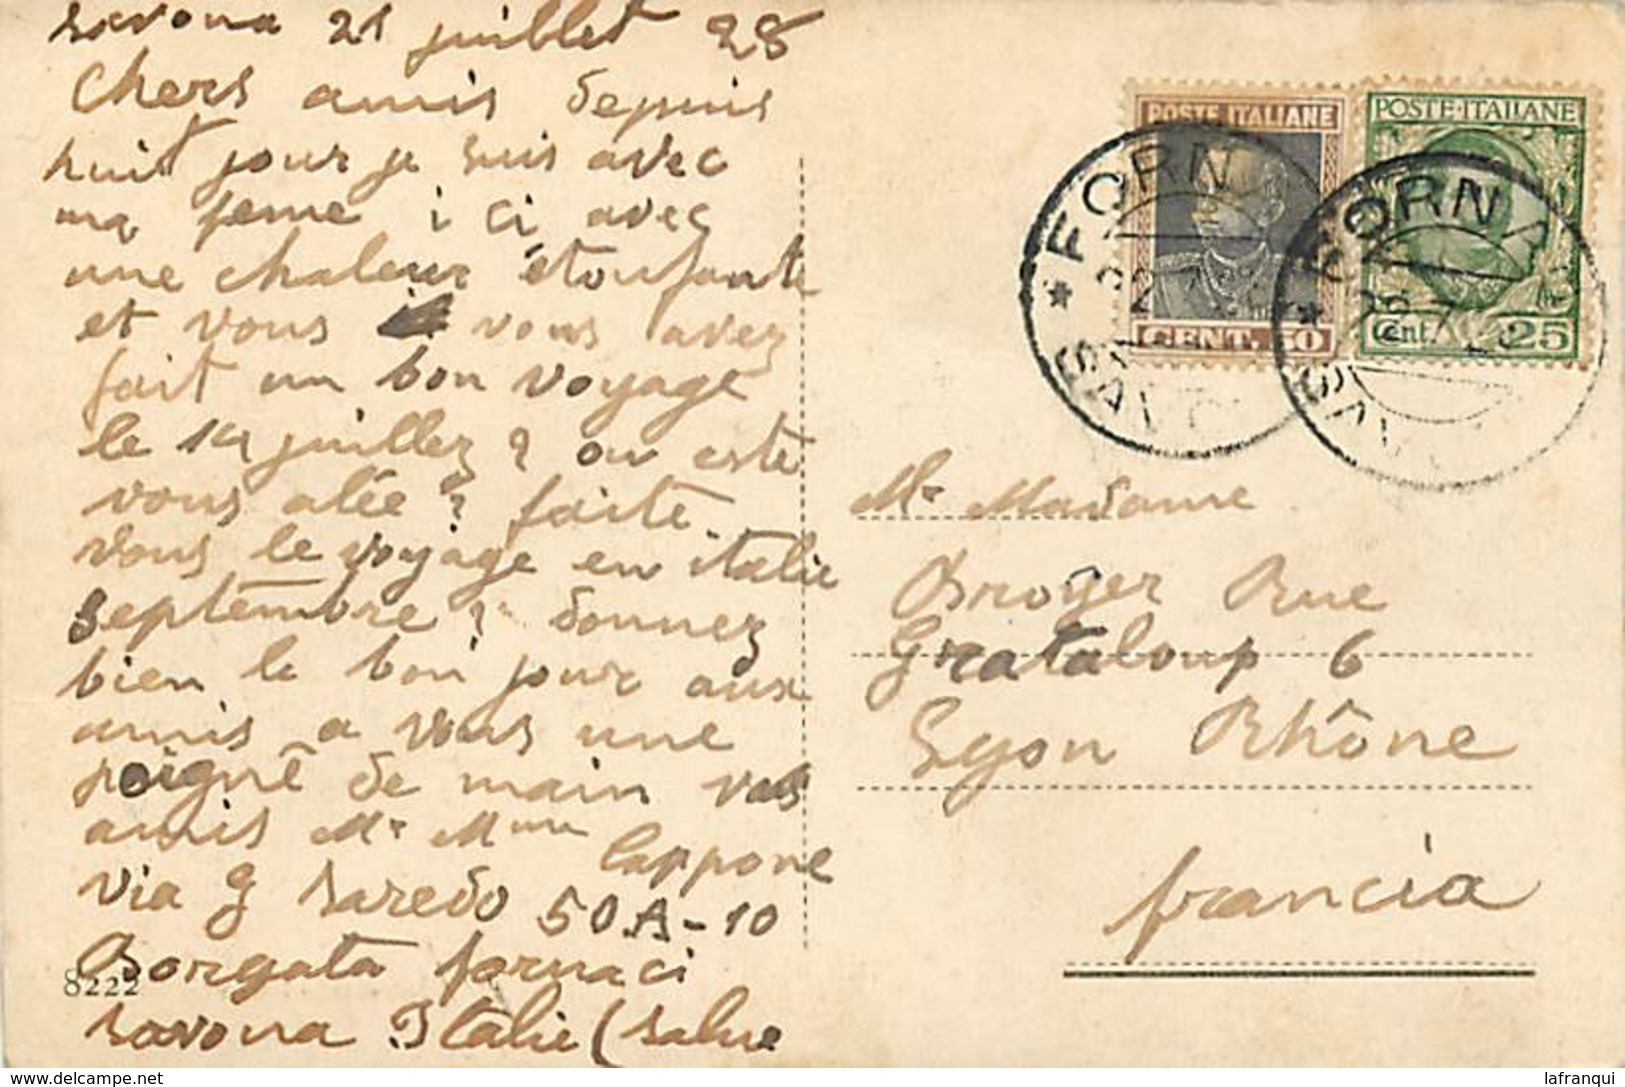 savona 21 juillet 28
Chers amis depuis
huit jour je suis avec
ma feme i ci avec
une chaleur étoufante
et vous vous avez
fait un bon voyage
le 14 juillez ? ou este
vous alée ? faite
vous le voyage en italie
septembre ? donnez
bien le bon jour aux
amis a vous une
poignê de main vos
amis Mr Mme
Cappone
via g saredo 50A-10
Borgata fornaci
savona Italie (salue
8222
POSTE ITALIANE
CENT. 50
POSTE·ITALIANE
Cent. 25
FORNA
22 7
SAV
FORNA
22 7
SAV
Mr Madame
Broger Rue
Grataloup 6
Lyon Rhône
francia
lafranqui